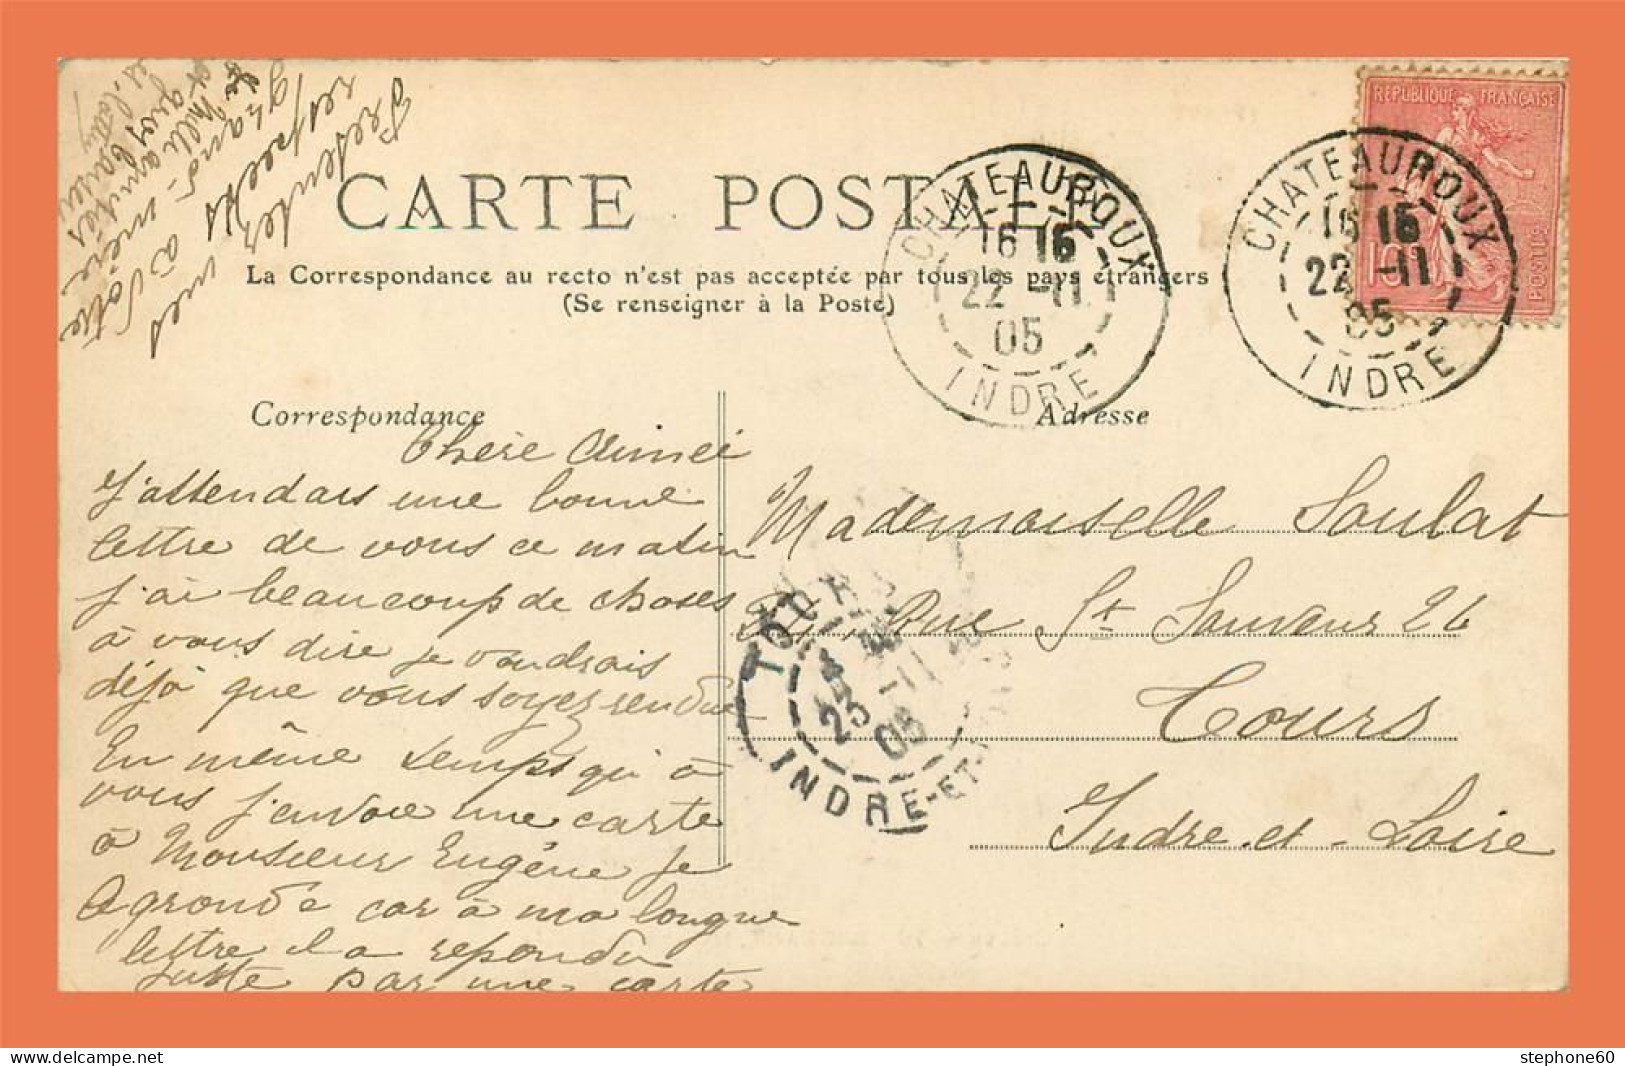 Presentez mes
respects à votre
grand-mère
et gros baisers
CARTE POSTALE
La Correspondance au recto n'est pas acceptée par tous les pays étrangers
(Se renseigner à la Poste)
REPUBLIQUE FRANÇAISE
10
POSTES
CHATEAUROUX
16 15
22 -11
05
INDRE
CHATEAUROUX
16 15
22 -11
05
INDRE
Correspondance
Chère Aimée
J'attendais une bonne
lettre de vous ce matin
j'ai beaucoup de choses
à vous dire je voudrais
déjà que vous soyez rendue
En même temps qu'à
vous j'envoie une carte
à Monsieur Eugène je
le gronde car à ma longue
lettre il a repondu
juste par une carte
Adresse
Mademoiselle Soulat
Rue St Sauveur 26
Tours
Indre-et-Loire
TOURS
23 -11
05
INDRE-ET-
delcampe.net
stephone60